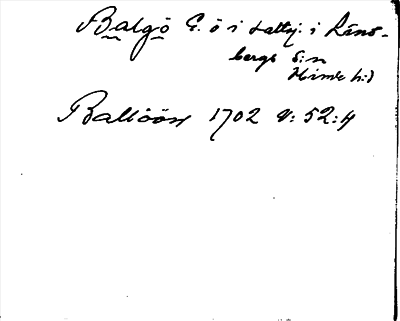 Balgö G. ö i saltsj. i Räns-
bergs s:n
Himle h:d
Ballöön 1702 V: 52:4